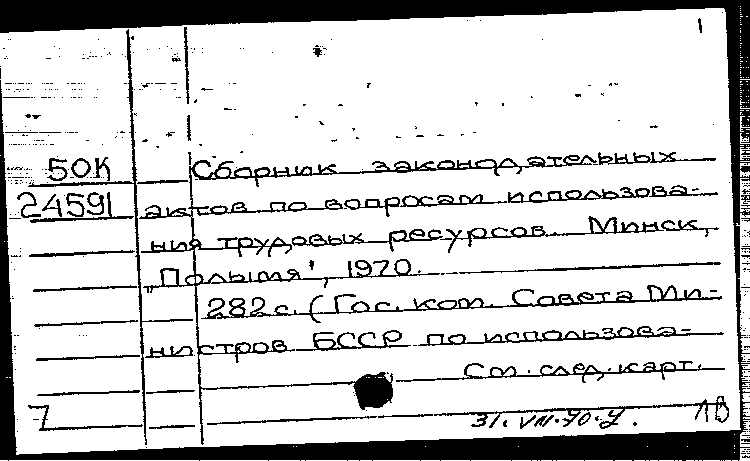 1
50К Сборник законодательных
24591 актов по вопросам использова-
ния трудовых ресурсов. Минск,
„Полымя", 1970.
282 с. (Гос. ком. Совета Ми-
нистров БССР по использова-
См. след. карт.
7 31. VIII. 70. г. 1В